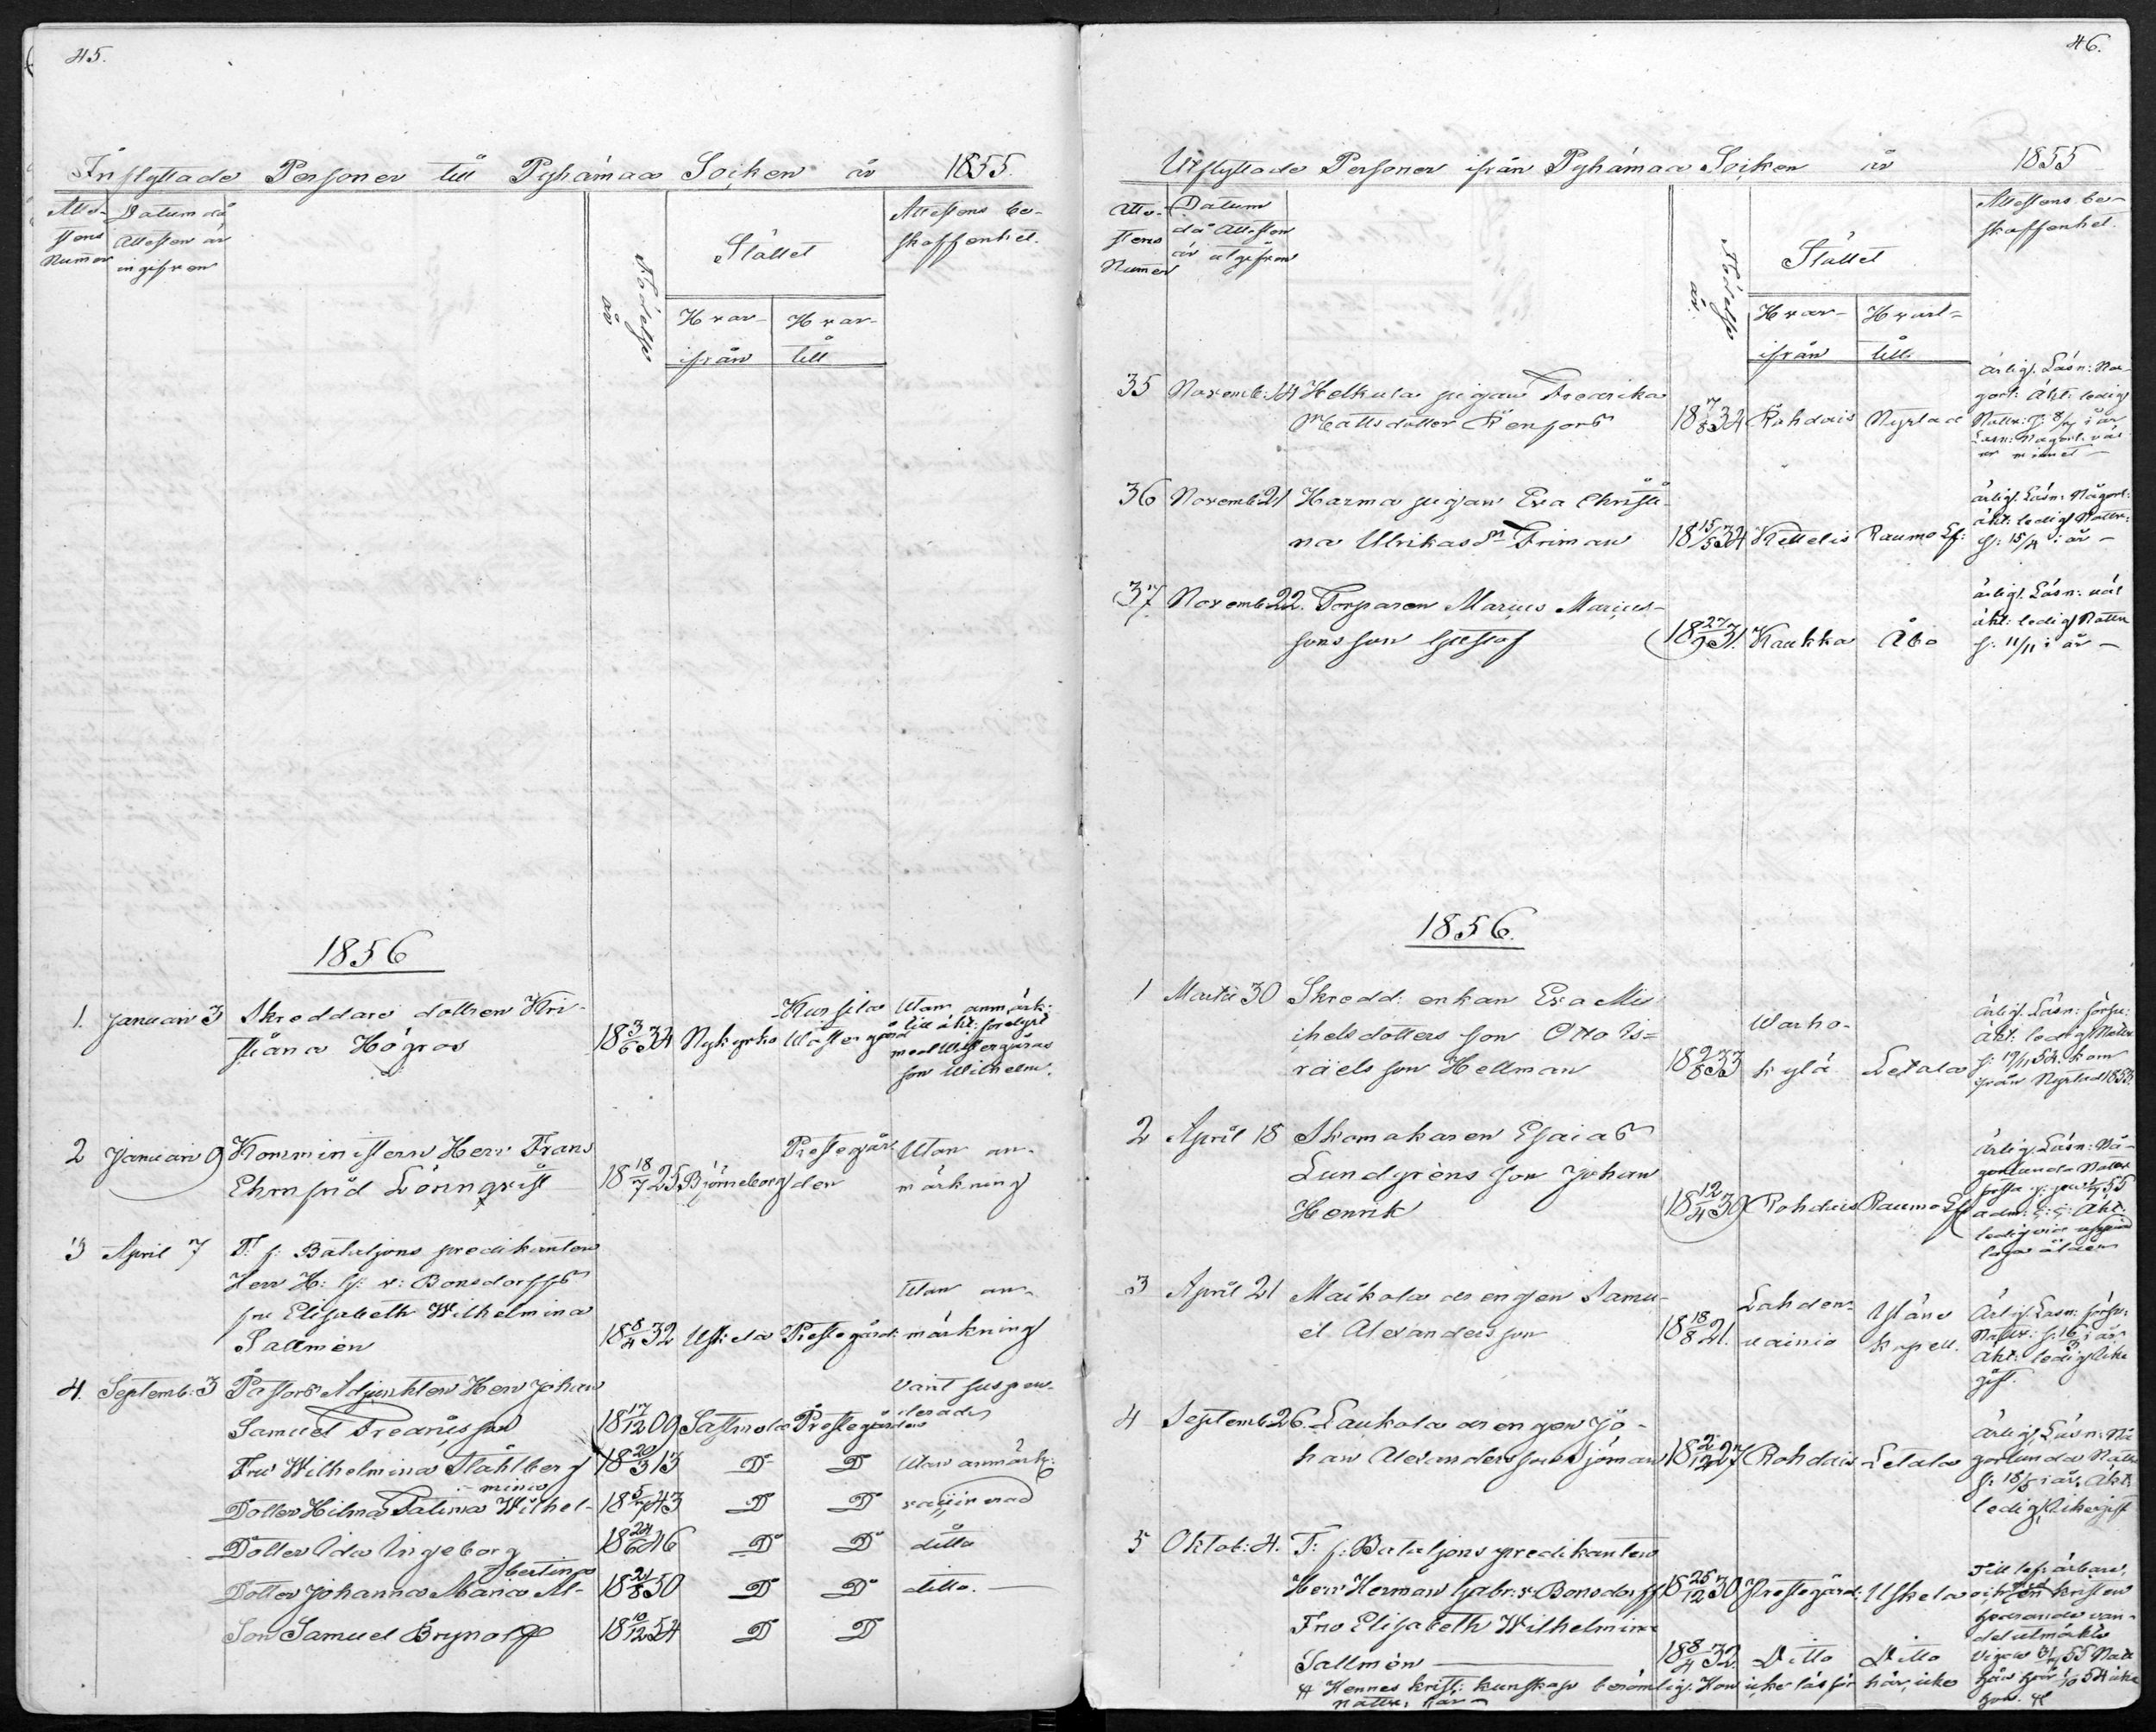 45.
Inflyttade Personer till Pyhämaa Socken år 1855.
Atte-
stens
Numer
Datum då
Attesten är
ingifven
Födelse
år
Stället
Hvar-
ifrån
Hvar-
till
Attestens be-
skaffenhet.
1856
1. Januari 3 Skreddare dottren Kri-
stiäna Högros 18 3/6 34 Nykyrko
Westergård Utan anmärk:
till äkt: förelyst
med Westergårds
son Wilhelm.
2 Januari 9 Komministern Herr Frans
Ehrnfrid Lönnqvist 18 18/7 25 Björneborg
Prestegår-
den
Utan an-
märkning
3 April 7 T. f: Bataljons predikanten
Herr H: G: v: Bonsdorffs
fru Elisabeth Wilhelmina
Sallmén 18 8/4 32 Uskela Prestegård:
Utan an-
märkning
4. Septemb: 3 Pastors Adjunkten Herr Johan
Samuel 18 17/12 09 Sastmola Prestegården
varit suspen-
derad
Fru Wilhelmina Ståhlberg 18 20/3 13 D D Utan anmärk:
mina
Dotter Hilma Wilhel- 18 5/7 43 D D
Dotter Ida Ingeborg 18 24/6 46 D D ditto
bertina
Dotter Johanna Maria Al- 18 21/8 50 D D ditto.
Son Samuel Brynolf 18 10/12 54 D D
46.
Utflyttade Personer ifrån Pyhämaa Socken år 1855
Atte-
stens
Numer
Datum
då Attesten
är utgifven
Födelse
år.
Stället
Hvar-
ifrån
Hvart-
till.
Attestens be-
skaffenhet.
35 Novemb: 14 Helkula pigan Fredrika
Mattsdotter Renfors 18 7/8 34 Rohdais Nystad
ärlig. Läsn: Nå-
gorl: Äkt: ledig
Nattv: g: 8/4 i år
36 Novemb 21 Harma pigan Eva Christi-
na Ulrikas dr Friman 18 15/5 34 Kettelis Raumo Lf:
ärlig. Läsn: Någorl:
äkt: ledig Nattv:
g: 15/4 i år –
37 Novemb 22. Torparen Marius Marius-
sons son Gustaf 18 27/9 31. Kaukka Åbo
ärlig. Läsn: väl
äkt: ledig Nattv
g: 11/11 i år –
1856.
1 Martii 30 Skredd: enkan Eva Mi-
chelsdotters son Otto Is=
raels son Hellman 18 2/8 33
Warho-
kylä Letala
ärlig. Läsn: försv:
Äkt: ledig Nattv
g: 19/11 54. kom
från Nystad 1855.
2 April 18 Skomakaren Esaias
Lundgréns son Johan
Henrik 18 12/4 39 Rohdais Raumo Lf
ärlig. Läsn: Nå-
gorlunda Nattv
3 April 21 Maikola drengen Samu-
el Alexandersson 18 18/8 21.
Lahden-
vainio
Yläne
kapell.
Ärlig. Läsn: försv:
Nattv: g: 16/3 i år
Äkt: ledig icke
gift.
4 Septemb 26. Laukola drengen Jo-
han Alexandersson Sjöman 18 2/12 27 Rohdais Letala
ärlig, Läsn: Nå
gorlunda Nattv
g: 18/5 i år. Äkt:
ledig, icke gift
5 Oktob: 4. T: f: Bataljons predikanten
Herr Herman Gabr: v: Bonsdorff 18 25/12 30 Prestegård: Uskela
Fru Elisabeth Wilhelmina
Sallmén 18 8/4 32. Ditto Ditto
Hennes kristl: kunskap berömlig. Hon icke läsför här, icke
nattv: här –